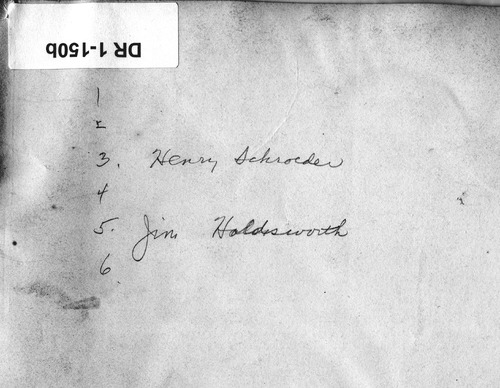 DR 1-150b
1
2
3. Henry Schroeder
4
5. Jim Holdsworth
6